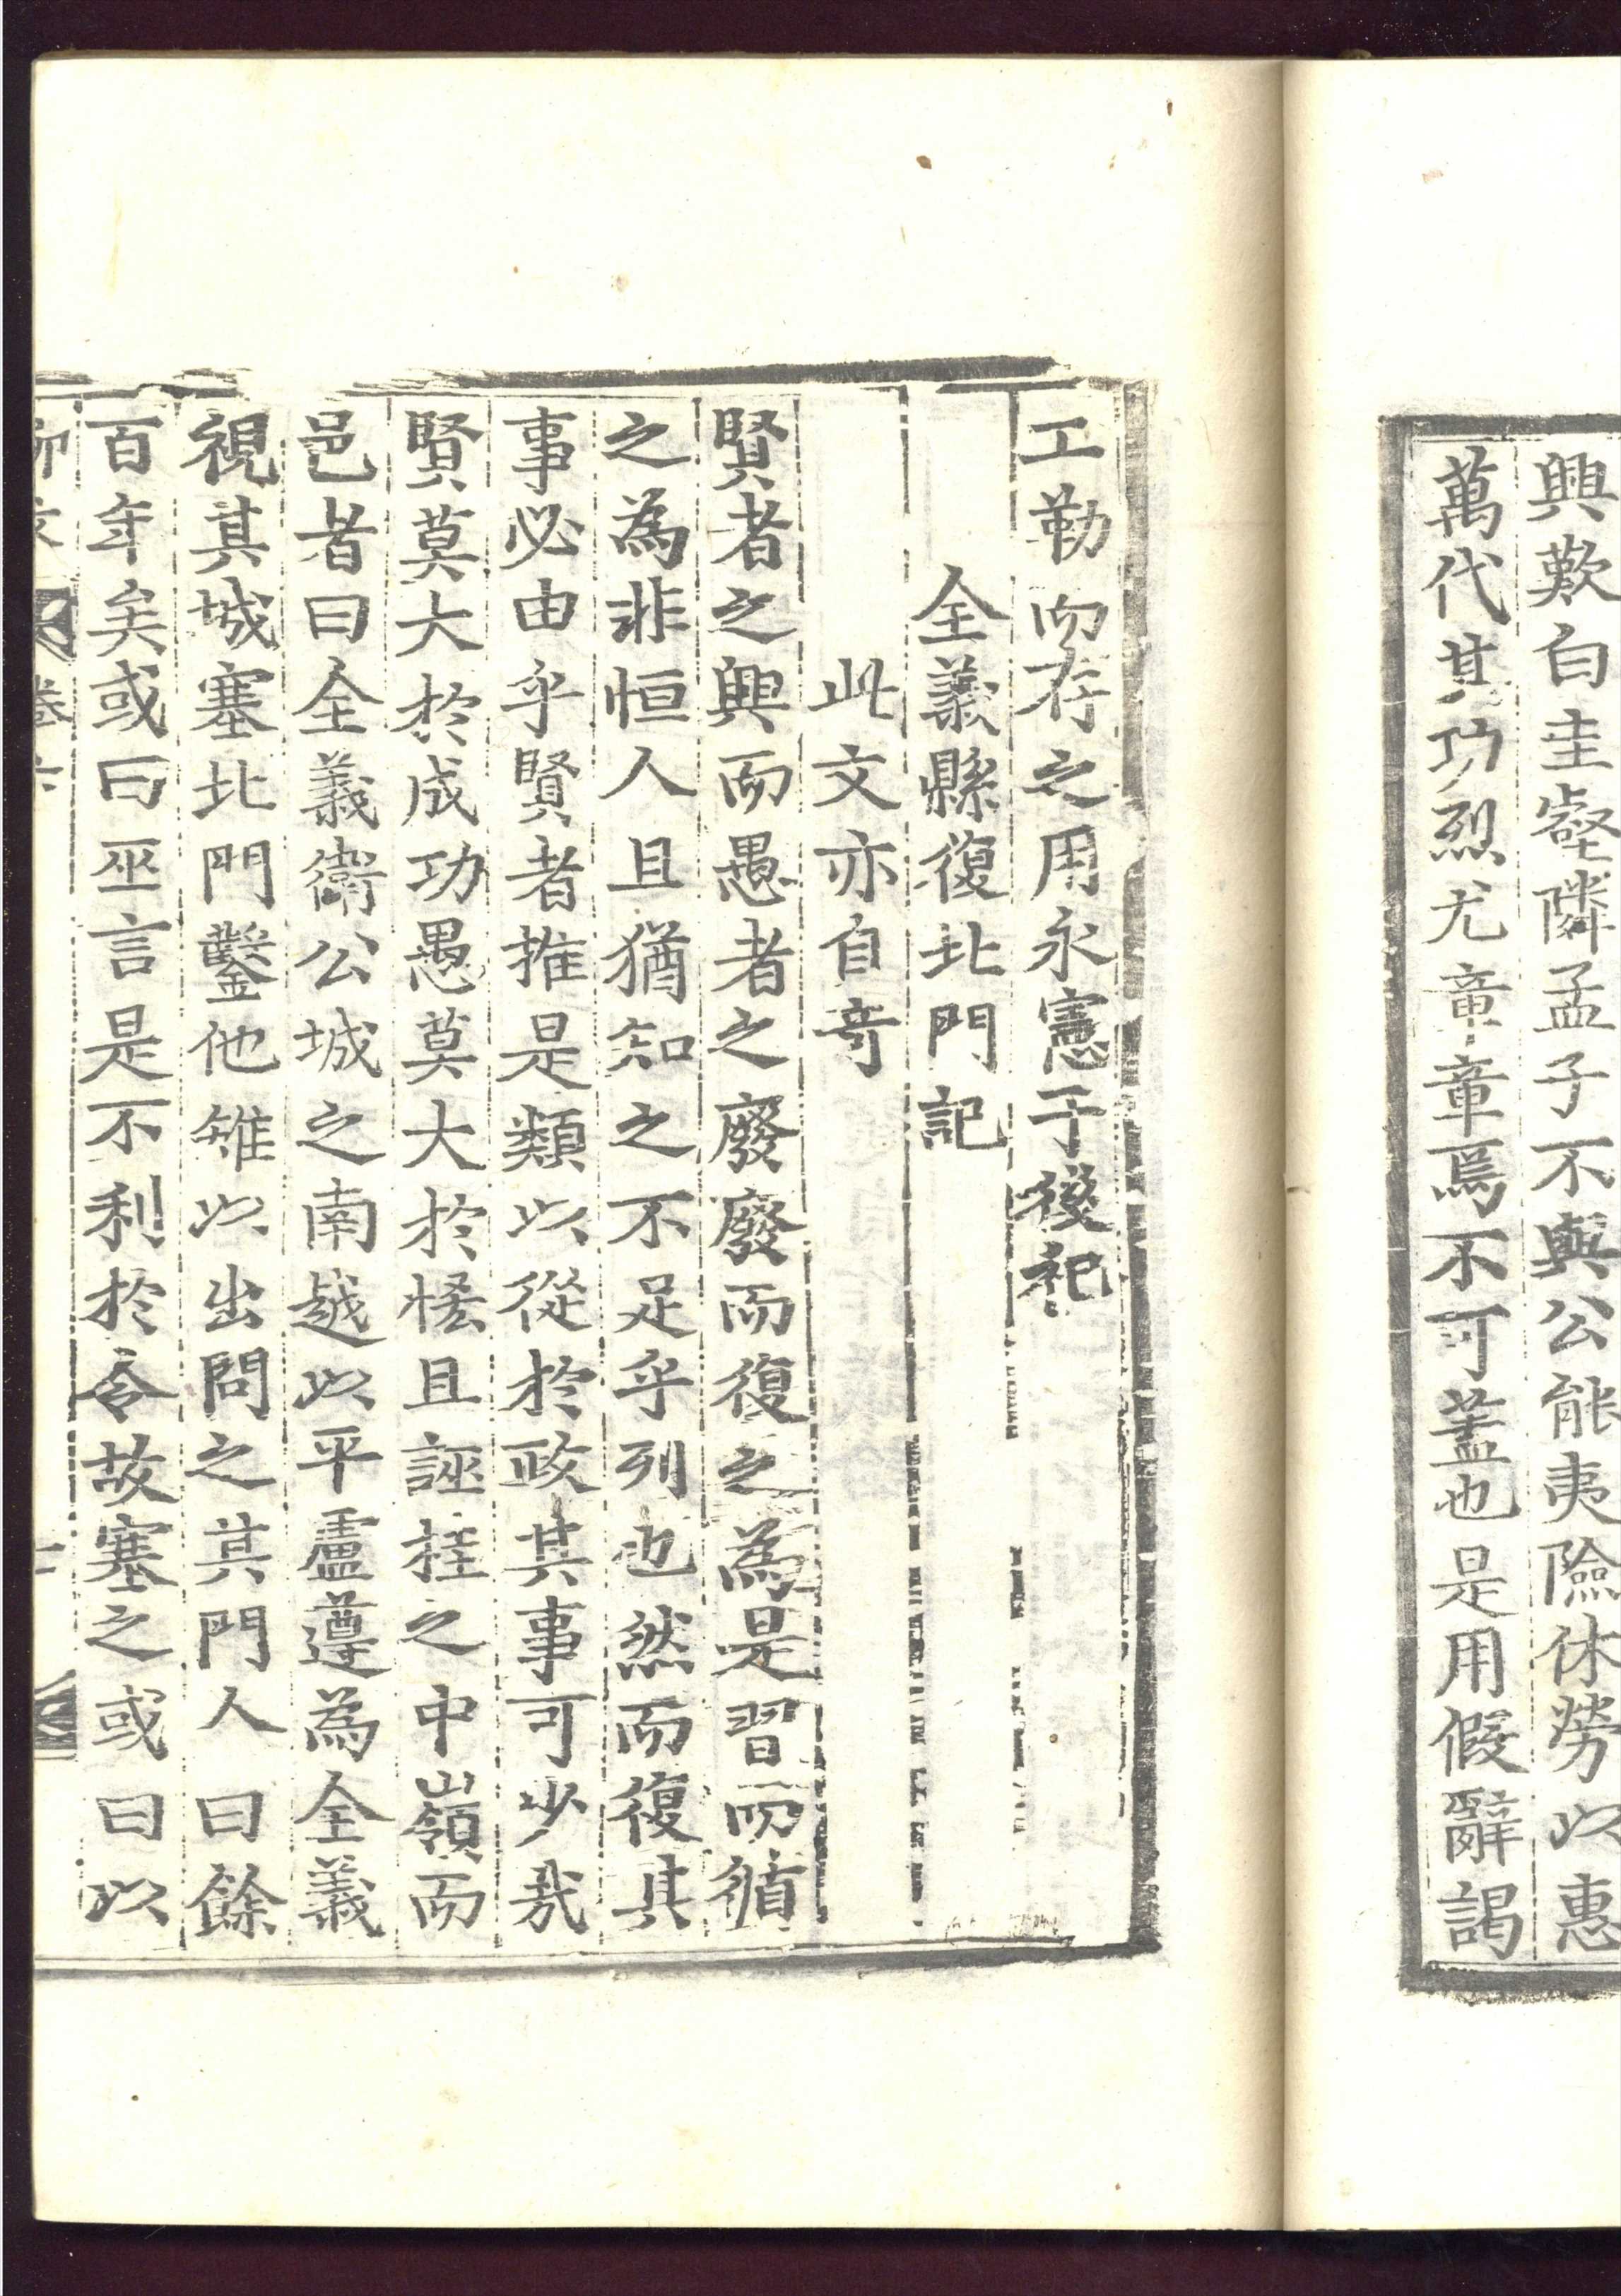 興歎白圭壑隣孟子不與公能夷險休勞以惠
萬代其功烈尤章章焉不可盖也是用假辭謁
工勒而存之用永憲于後祀
全義縣復北門記
此文亦自竒
賢者之興而愚者之廢廢而復之為是習而循
之為非恒人且猶知之不足乎列也然而復其
事必由乎賢者推是類以從於政其事可少哉
賢莫大於成功愚莫大於恡且誣桂之中嶺而
邑者曰全義衛公城之南越以平盧遵為全義
視其城塞北門鑿他雉以出問之其門人曰餘
百年矣或曰巫言是不利於令故塞之或曰以